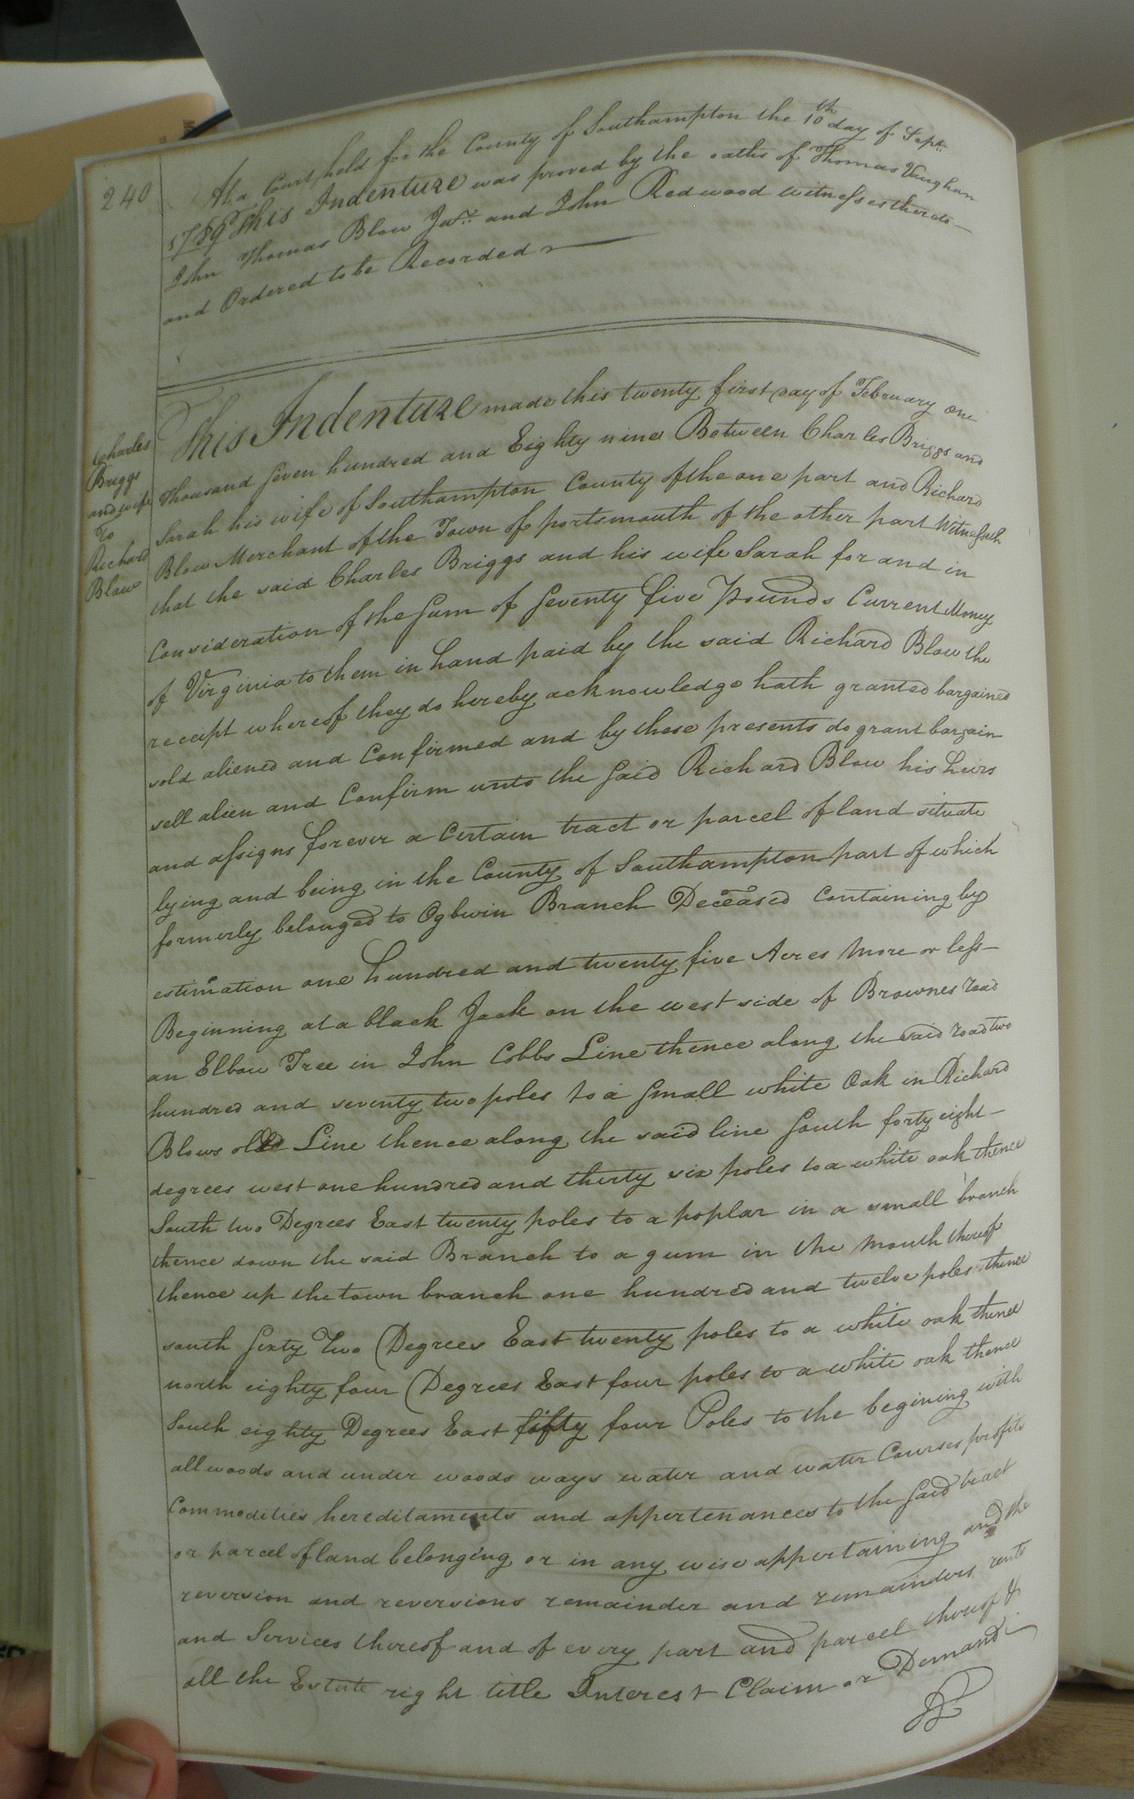 240
At a Court held for the County of Southampton the 10th day of Sept.
1789 This Indenture was proved by the oaths of Thomas Vaughan
John Thomas Blow Junr and John Redwood witnesses thereto
and Ordered to be Recorded
Charles
Briggs
and wife
To
Richard
Blow
This Indenture made this twenty first day of February one
thousand Seven hundred and Eighty nine Between Charles Briggs and
Sarah his wife of Southampton County of the one part and Richard
Blow Merchant of the Town of portsmouth of the other part Witnesseth
that the said Charles Briggs and his wife Sarah for and in
Consideration of the Sum of Seventy five Pounds Current Money
of Virginia to them in hand paid by the said Richard Blow the
receipt whereof they do hereby acknowledge hath granted bargained
sold aliened and Confirmed and by these presents do grant bargain
sell alien and Confirm unto the Said Richard Blow his heirs
and assigns forever a Certain tract or parcel of land situate
lying and being in the County of Southampton part of which
formerly belonged to Ogbwin Branch Deceased Containing by
estimation one hundred and twenty five Acres More or less
Beginning at a black Jack on the west side of Brownes road
an Elbow Tree in John Cobbs Line thence along the said road two
hundred and seventy two poles to a Small white Oak in Richard
Blows old Line thence along the said line South forty eight
degrees west one hundred and thirty six poles to a white oak thence
South two Degrees East twenty poles to a poplar in a small branch
thence down the said Branch to a gum in the Mouth thereof
thence up the town branch one hundred and twelve poles thence
south Sixty Two Degrees East twenty poles to a white oak thence
north eighty four Degrees East four poles to a white oak thence
South eighty Degrees East fifty four Poles to the begining with
all woods and under woods ways water and water Courses profits
Commodities hereditaments and appertenances to the Said tract
or parcel of land belonging or in any wise appertaining and the
reversion and reversions remainder and remainders rents
and Services thereof and of every part and parcel thereof &
all the Estate right title Interest Claim or Demand